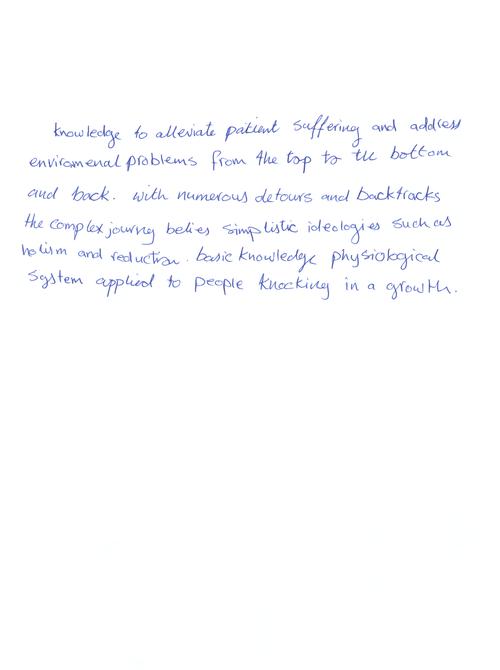 knowledge to alleviate patient suffering and address
enviromenal problems from the top to the bottom
and back. with numerous detours and backtracks
the complex journy belies simplistic ideologies such as
holism and reduction. basic knowledge physiological
System applied to people knocking in a growth.